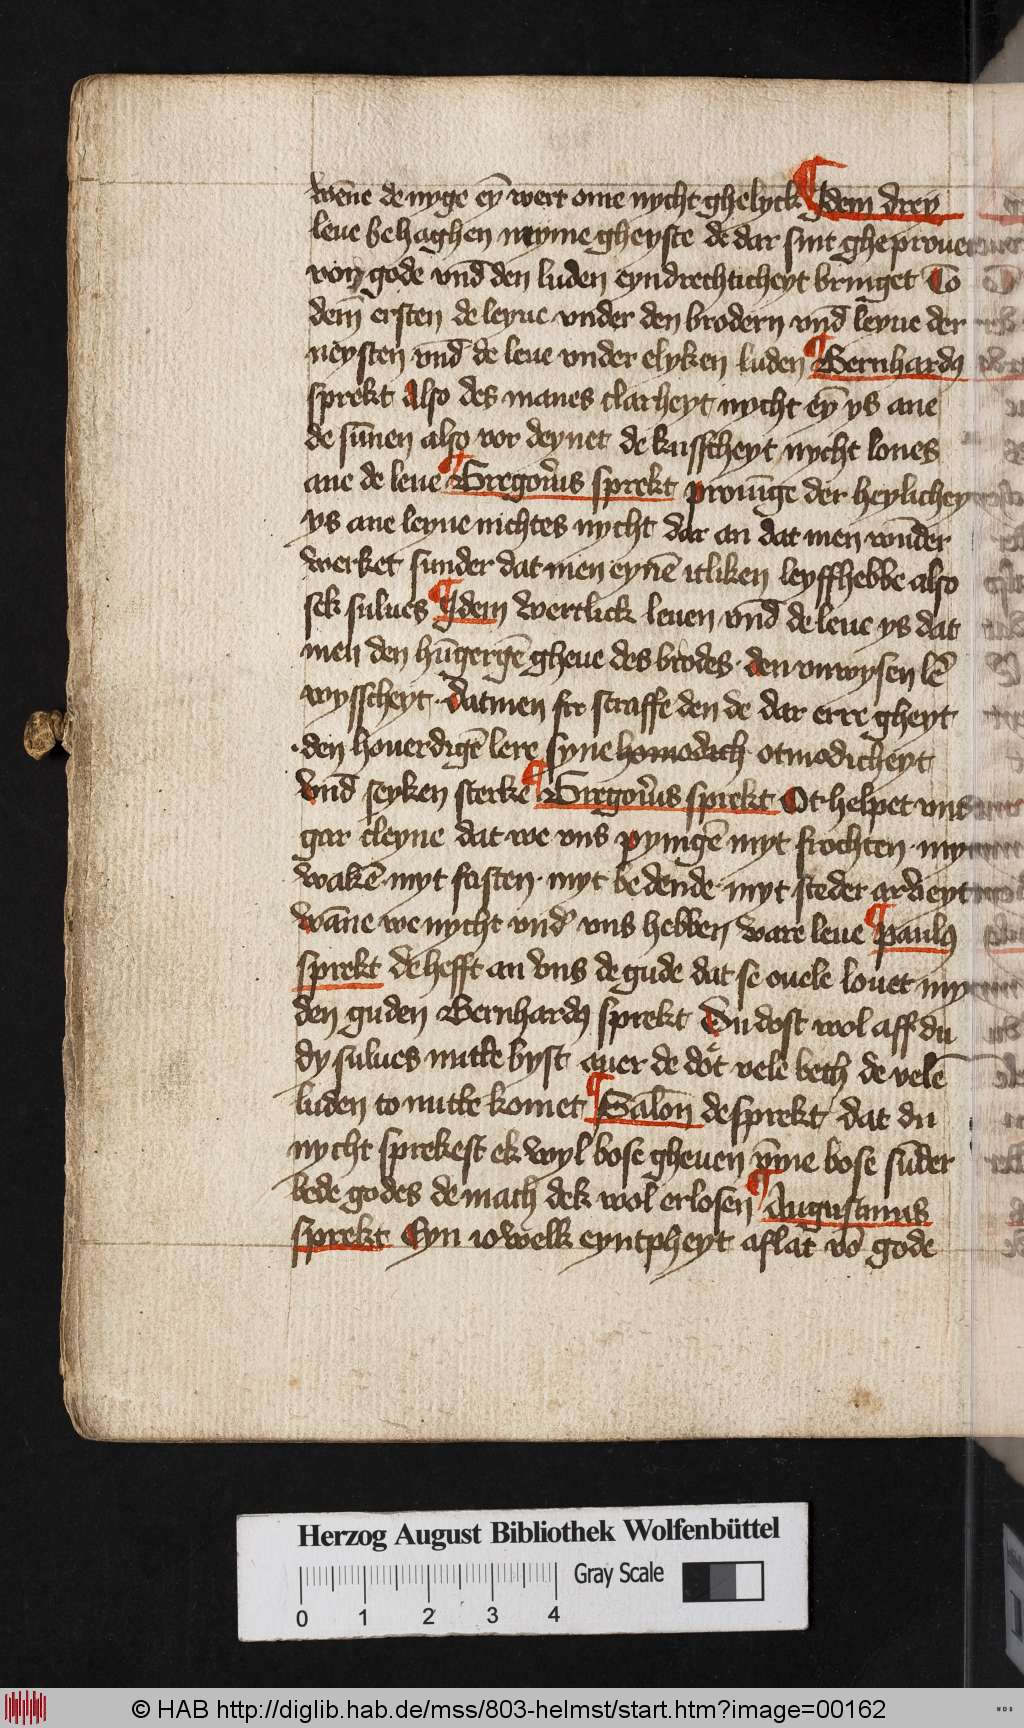 wēne de nyge eȳ wert ome nycht ghelyck ¶ Jdem drey
leue behaghen myme gheyste de dar sint gheprouet
von gode vnd̄ den luden eyndrechticheyt bringet To
dem̄ ersten de leyue vnder den brodern vnd̄ leyue der
neysten vnd̄ de leue vnder elyken luden ¶ Bernhardꝯ
sprekt Also des manes clarheyt nycht eȳ ys ane
de sūnen also vor deynet de kusscheyt nycht lones
ane de leue ¶ Gregoriꝰs sprekt prouīge der heylichey
ys ane leyue nichtes nycht dar an dat men wūder
werket sunder dat men eynē itliken leyff hebbe also
sek sulues ¶ Jdem wertlick leuen vnd̄ de leue ys dat
men den hūgergē gheue des brodes · den vnwysen lē
wysscheyt · dat men straffe den de dar erre gheyt
· den houerdigē lere syne homodich otmodicheyt
vnd̄ seyken sterke ¶ Gregoriꝰs sprekt Ot helpet vns
gar cleyne dat we vns pynigē myt frochten · my
wakē · myt fasten · myt bedende · myt steder arbeyt
wāne we nycht vnd̓ vns hebben ware leue ¶ paulꝯ
sprekt de hefft an vns de gude dat se ouele louet my
den guden Bernhardꝯ sprekt Du dost wol aff du
dy sulues nutte byst auer de dot vele beth de velē
luden to nutte komet ¶ Salon̄ de sprekt dat du
nycht sprekest ek wyl bose gheuen v̄me bose sūder
bede godes de mach dek wol erlosen ¶ Augustinus
sprekt Eyn iowelk eyntpheyt aflat vō gode
Herzog August Bibliothek Wolfenbüttel
Gray Scale
0 1 2 3 4
© HAB http://diglib.hab.de/mss/803-helmst/start.htm?image=00162